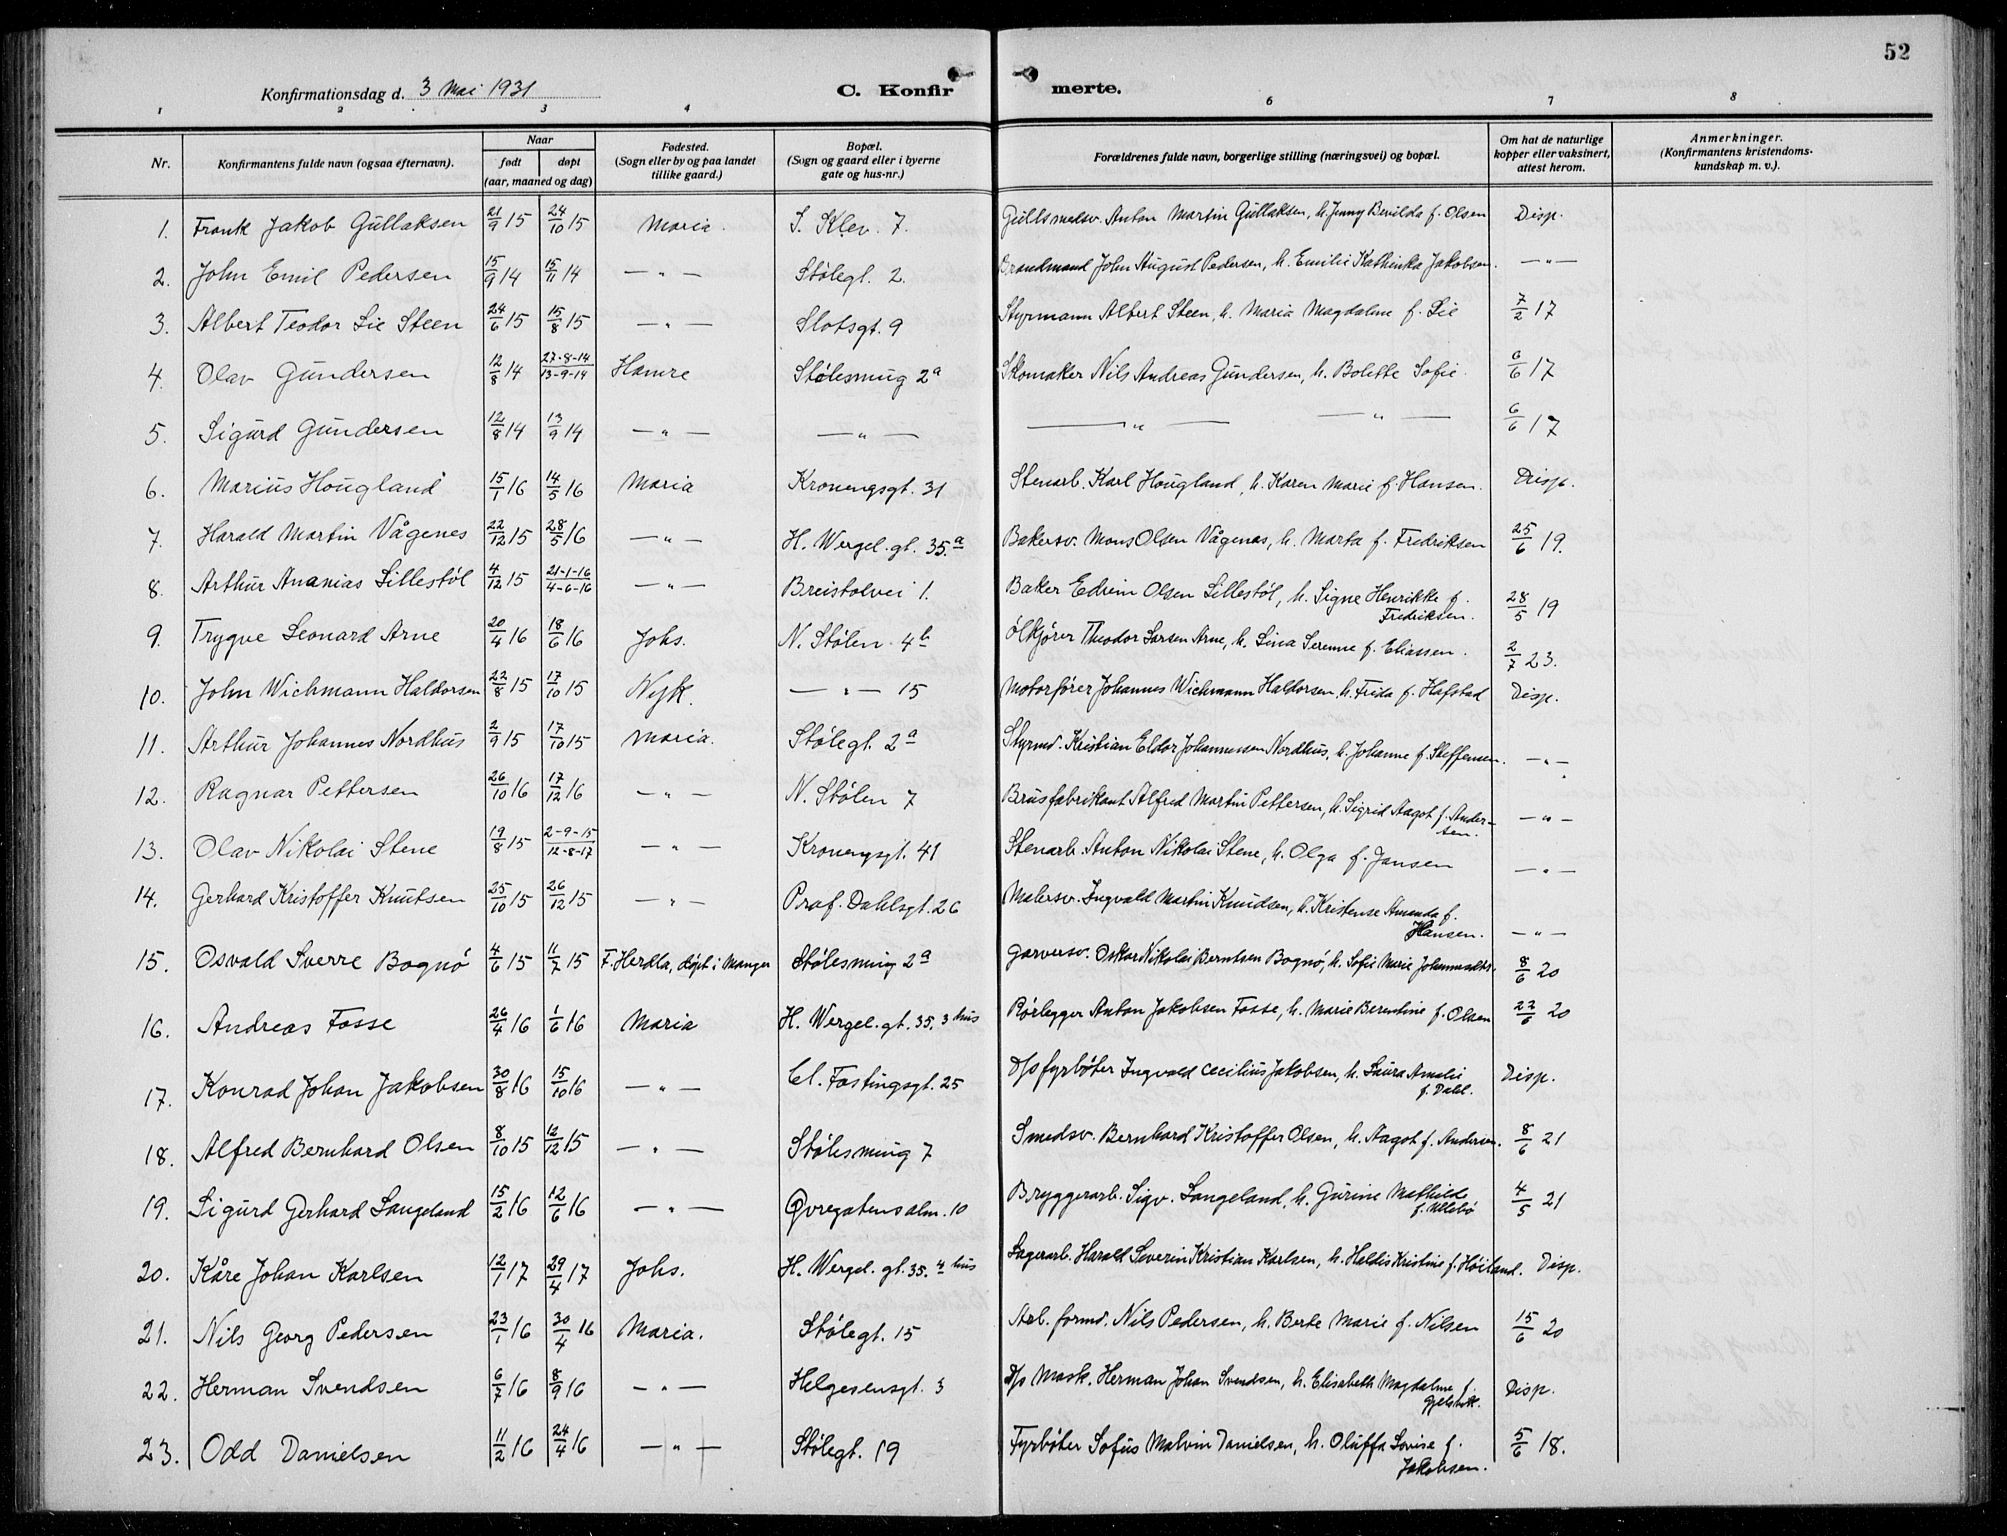 52
Konfirmationsdag d. 3 Mai 1931
C. Konfirmerte.
1 2 3 4 6 7 8
Nr.
Konfirmantens fulde navn (ogsaa efternavn).
Naar
født døpt
(aar, maaned og dag)
Fødested.
(Sogn eller by og paa landet
tillike gaard.)
Bopæl.
(Sogn og gaard eller i byerne
gate og hus-nr.)
Forældrenes fulde navn, borgerlige stilling (næringsvei) og bopæl.
Om hat de naturlige
kopper eller vaksinert,
attest herom.
Anmerkninger.
(Konfirmantens kristendoms-
kundskap m. v.).
1. Frank Jakob Gullaksen 21/9 15 24/10 15 Maria. S. Klev. 7. Gullsmedsv. Anton Martin Gullaksen, h. Jenny Berilda f. Olsen Disp.
2. John Emil Pedersen 15/9 14 15/11 14 — " — Stølegt. 2. Brandmand John August Pedersen, h. Emilie Kathinka Jakobsen. — " —
3. Albert Teodor Lie Steen 24/6 15 15/8 15 — " — Slotsgt. 9 Styrmann Albert Steen, h. Maria Magdalene f. Lie 7/2 17
4. Olav Gundersen 12/8 14 27-8-14/13-9-14 Hamre Stølesmug 2a Skomaker Nils Andreas Gundersen, h. Bolette Sofie. 6/6 17
5. Sigurd Gundersen 12/8 14 13/9 14 — " — — " — — " — — " — 6/6 17
6. Marius Hougland 15/1 16 14/5 16 Maria Kronengsgt. 31 Stenarb. Karl Hougland, h. Karen Marie f. Hansen. Disp.
7. Harald Martin Vågenes 22/12 15 28/5 16 — " — H. Wergel. gt. 35.a Bakersv. Mons Olsen Vågenes, h. Marta f. Fredriksen 25/6 19.
8. Arthur Ananias Lillestøl 4/12 15 21-1-16/4-6-16 — " — Breistølvei 1. Baker Edvin Olsen Lillestøl, h. Signe Henrikke f.
Fredriksen. 28/5 19
9. Trygve Leonard Arne 20/4 16 18/6 16 Johs. N. Stølen. 4b Ølkjører Theodor Larsen Arne, h. Lina Serenne f. Eliassen. 2/7 23.
10. John Wichmann Haldorsen 22/8 15 17/10 15 Nyk. — " — 15 Motorfører Johannes Wichmann Haldorsen, h. Frida f. Hafstad Disp.
11. Arthur Johannes Nordhus 2/9 15 17/10 15 Maria. Stølegt. 2a Styrmd. Kristian Eldor Johannessen Nordhus, h. Johanne f. Steffensen. — " —
12. Ragnar Pettersen 26/10 16 17/12 16 — " — N. Stølen 7 Brusfabrikant Alfred Martin Pettersen, h. Sigrid Aagot f. Ander-
sen. — " —
13. Olav Nikolai Stene 19/8 15 2-9-15/12-8-17 — " — Kronengsgt. 41 Stenarb. Anton Nikolai Stene, h. Olga f. Jansen — " —
14. Gerhard Kristoffer Knutsen 25/10 15 26/12 15 — " — Prof. Dahlsgt. 26 Malersv. Ingvald Martin Knudsen, h. Kristense Amanda f.
Hansen. — " —
15. Osvald Sverre Bognø 4/6 15 11/7 15 F. Herdla, døpt i Manger Stølesmug 2a Garversv. Oskar Nikolai Berntsen Bognø, h. Sofie Marie Johannesdtr. 8/6 20
16. Andreas Fosse 26/4 16 1/6 16 Maria H. Wergel. gt. 35. 3 hus Rørlegger Anton Jakobsen Fosse, h. Marie Berentine f. Olsen 22/6 20
17. Konrad Johan Jakobsen 30/8 16 15/10 16 — " — Cl. Fastingsgt. 25 D/s fyrbøter Ingvald Cecilius Jakobsen, h. Laura Amalie
f. Dahl. Disp.
18. Alfred Bernhard Olsen 8/10 15 12/12 15 — " — Stølesmug 7 Smedsv. Bernhard Kristoffer Olsen, h. Aagot f. Andersen. 8/6 21
19. Sigurd Gerhard Langeland 15/2 16 12/6 16 — " — Øvregatens alm. 10 Bryggerarb. Sigv. Langeland, h. Gurine Mathilde
f. Ullebø 4/5 21
20. Kåre Johan Karlsen 12/1 17 29/4 17 Johs. H. Wergel. gt. 35. 4 hus Lagerarb. Harald Severin Kristian Karlsen, h. Haldis Kristine f. Høiland. Disp.
21. Nils Georg Pedersen 23/1 16 30/4 16 Maria. Stølegt. 15 Arb. formd. Nils Pedersen, h. Berte Marie f. Nilsen 15/6 20
22. Herman Svendsen 6/7 16 8/9 16 — " — Helgesensgt. 3 D/s Mask. Herman Johan Svendsen, h. Elisabeth Magdalene f.
Disp.
23. Odd Danielsen 11/2 16 24/4 16 — " — Stølegt. 19 Fyrbøter Sofus Malvin Danielsen, h. Oluffa Lovise f.
Jakobsen. 5/6 18.